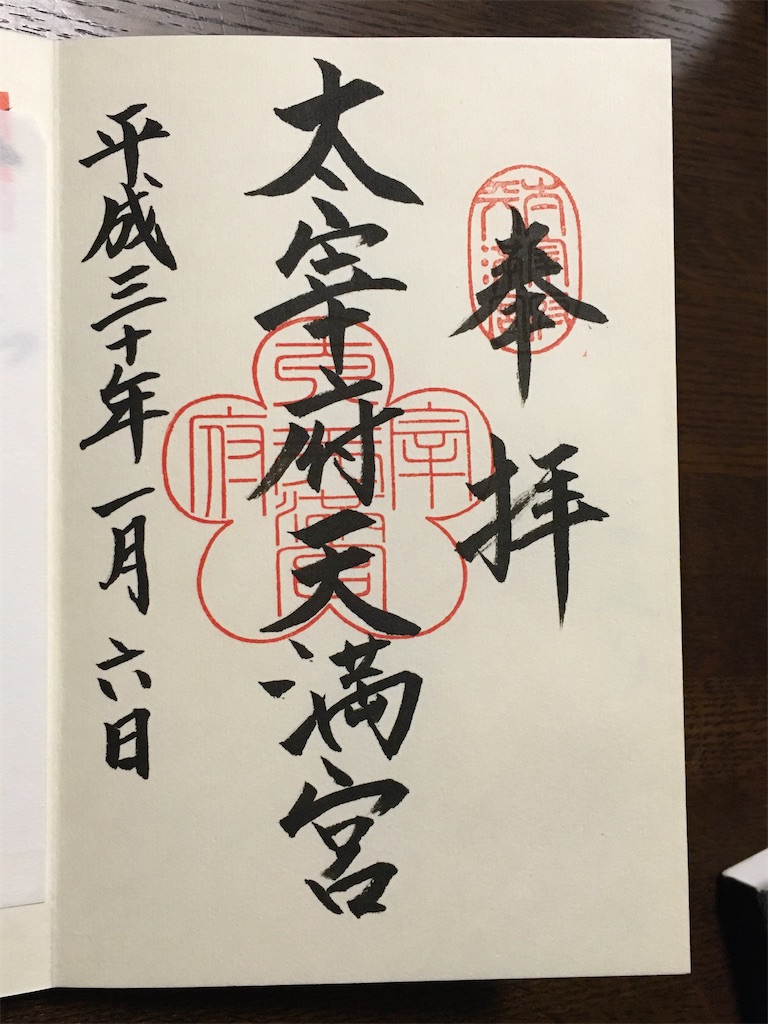 奉拝
太宰府天満宮
平成三十年一月六日
太宰府
天満宮